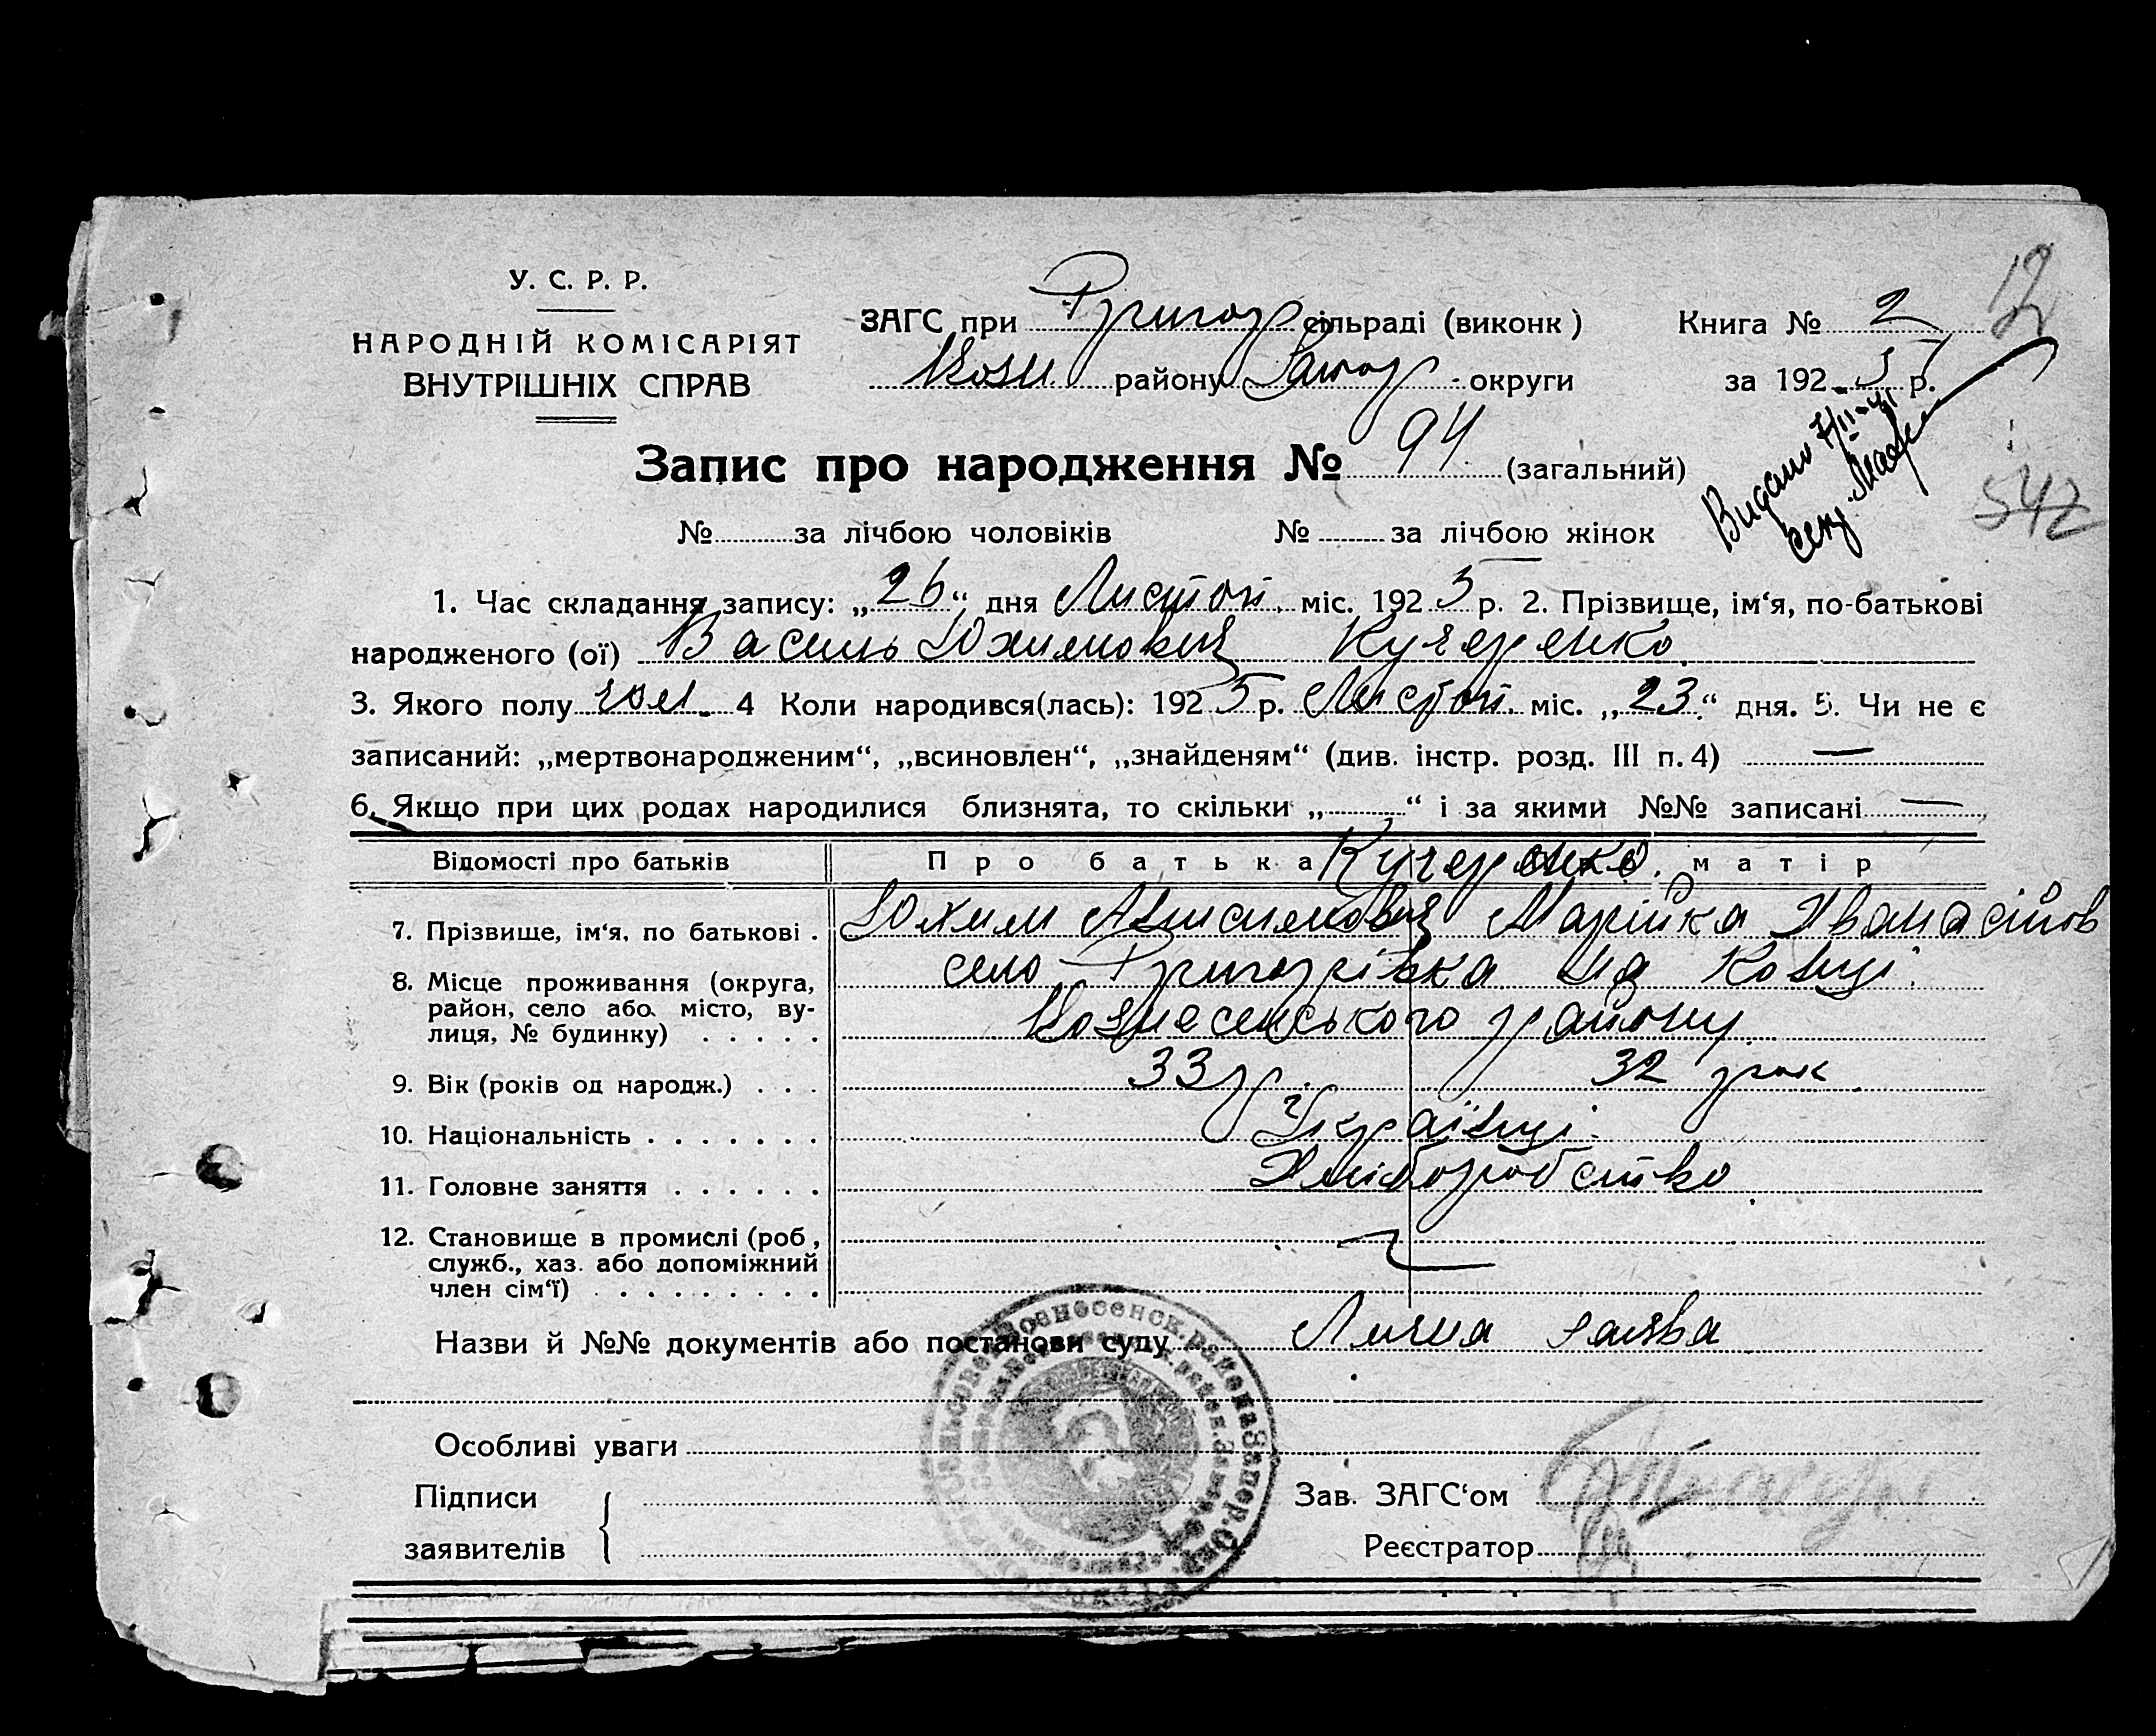 У. С. Р. Р.
НАРОДНІЙ КОМІСАРІЯТ
ВНУТРІШНІХ СПРАВ
ЗАГС при Григор сільраді (виконк)
Возн. району Запор. округи
Книга № 2
за 1925 р.
12
Запис про народження № 94 (загальний)
Видано 7/II-41
542
№ за лічбою чоловіків № за лічбою жінок
1. Час складання запису: „26“ дня Листоп. міс. 1925 р. 2. Прізвище, ім‘я, по-батькові
народженого (ої) Василь Юхимович Кучеренко
3. Якого полу чол. 4 Коли народився(лась): 1925 р. Листоп. міс. „23“ дня. 5. Чи не є
записаний: „мертвонародженим“, „всиновлен“, „знайденям“ (див. інстр. розд. III п. 4) —
6. Якщо при цих родах народилися близнята, то скільки „ “ і за якими №№ записані —
Відомості про батьків Про батька Кучеренко. матір
7. Прізвище, ім‘я, по батькові . Юхим Анисимович Марійка
8. Місце проживання (округа, район, село або місто, вулиця, № будинку) село Григорівка на Конці
Вознесенського району
9. Вік (років од народж.) . . . 33 р. 32 рок.
10. Національність . . . . . . . Українці
11. Головне заняття . . . . . . Хліборобство
12. Становище в промислі (роб, служб., хаз. або допоміжний член сім‘ї)
Назви й №№ документів або постанови суду Лична заява
Особливі уваги
Підписи
заявителів
Зав. ЗАГС‘ом
Реєстратор